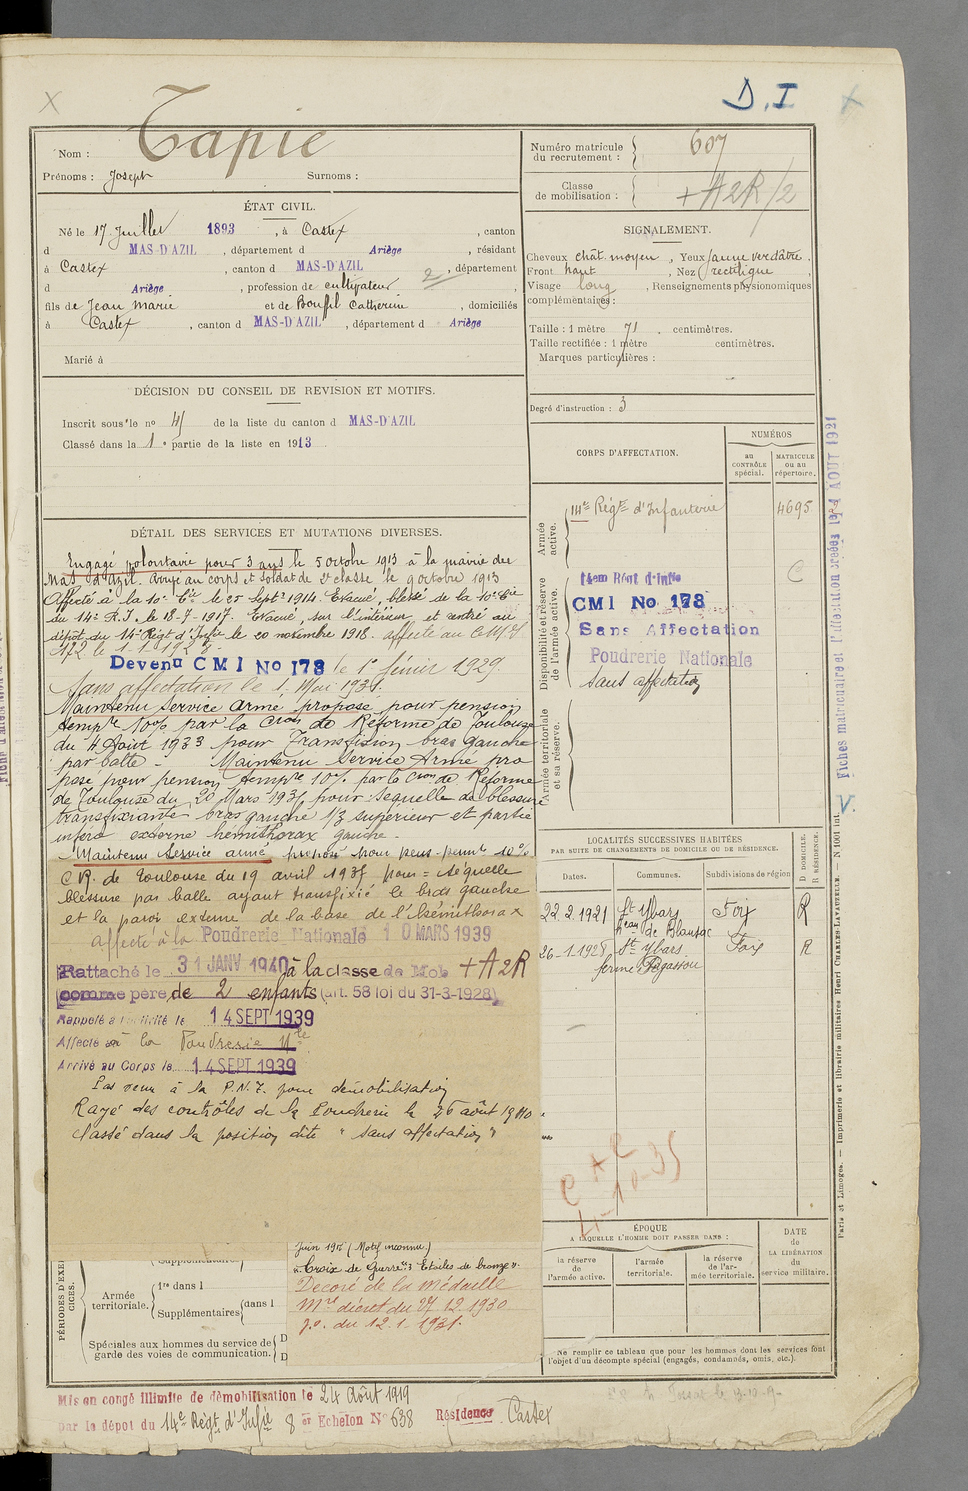 D.I
Nom : Tapie
Prénoms : Joseph Surnoms :
Numéro matricule du recrutement : 607
Classe de mobilisation : + A2R/2
ÉTAT CIVIL.
Né le 17 Juillet 1893, à Castex, canton
d MAS-D'AZIL, département d Ariège, résidant
à Castex, canton d MAS-D'AZIL, département
d Ariège, profession de cultivateur 2
fils de Jean Marie et de Boufil Catherine, domiciliés
à Castex, canton d MAS-D'AZIL, département d Ariège
Marié à
SIGNALEMENT.
Cheveux chât. moyen, Yeux jaune verdâtre.
Front haut, Nez rectiligne,
Visage long, Renseignements physionomiques
complémentaires :
Taille : 1 mètre 71 centimètres.
Taille rectifiée : 1 mètre centimètres.
Marques particulières :
DÉCISION DU CONSEIL DE REVISION ET MOTIFS.
Inscrit sous le no 4 de la liste du canton d MAS-D'AZIL
Classé dans la 1 e partie de la liste en 1913
Degré d'instruction : 3
CORPS D'AFFECTATION.
NUMÉROS
au CONTRÔLE spécial.
MATRICULE ou au répertoire.
Armée active.
14e Régt d'Infanterie 4695
C
Disponibilité et réserve de l'armée active.
14em Régt d'infie
CMI No 178
Sans Affectation
Poudrerie Nationale
Sans affectation
Armée territoriale et sa réserve.
DÉTAIL DES SERVICES ET MUTATIONS DIVERSES.
Engagé volontaire pour 3 ans le 5 octobre 1913 à la mairie du
Mas d'Azil. Arrivé au corps et soldat de 2e classe le 9 octobre 1913
Affecté à la 10e Cie le 25 Septe 1914. Evacué, blessé de la 10e Cie
du 14e R.I le 18-7-1917. Evacué, sur l'intérieur et rentré au
dépôt du 14e Régt d'Infie le 20 novembre 1918. affecté au CMI
172 le 1-1-1928.
Devenu CMI No 178 le 1er février 1929.
Sans affectation le 1er Mai 193
Maintenu Service armé proposé pour pension
tempre 10% par la Cion de Réforme de Toulouse
du 4 Août 1933 pour Transfixion bras gauche
par balle - Maintenu Service Armé pro
posé pour pension tempre 10% par la Cion de Réforme
de Toulouse du 20 Mars 193 pour Sequelle de blessure
transfixiante bras gauche 1/3 supérieur et partie
inféro externe hémithorax gauche.
Maintenu Service armé proposé pour pens. permte 10%
C.R. de Toulouse du 19 avril 193 pour = séquelle
blessure par balle ayant transfixié le bras gauche
et la paroi externe de la base de l'hémithorax
affecté à la Poudrerie Nationale 10 MARS 1939
Rattaché le 31 JANV 1940 à la classe de Mob + A2R
comme père de 2 enfants (art. 58 loi du 31-3-1928)
Rappelé à l'activité le 14 SEPT 1939
Affecté à la Poudrerie Nle
Arrivé au Corps le 14 SEPT 1939
Pas venu à la P.N.T. pour démobilisation
Rayé des contrôles de la Poudrerie le 26 août 1940.
classé dans la position dite "sans affectation"
LOCALITÉS SUCCESSIVES HABITÉES
PAR SUITE DE CHANGEMENTS DE DOMICILE OU DE RÉSIDENCE.
Dates. Communes. Subdivisions de région D DOMICILE. R RÉSIDENCE.
22.2.1921 St Ybars Foix R
26-1-1928 St Ybars Foix R
ferme
ÉPOQUE
A LAQUELLE L'HOMME DOIT PASSER DANS :
la réserve de l'armée active.
l'armée territoriale.
la réserve de l'armée territoriale.
DATE de LA LIBÉRATION du service militaire.
Ne remplir ce tableau que pour les hommes dont les services font
l'objet d'un décompte spécial (engagés, condamnés, omis, etc.).
PÉRIODES D'EXERCICES.
Supplémentaire
Armée territoriale.
1re dans l
Supplémentaires dans l
Spéciales aux hommes du service de
garde des voies de communication.
Juin 191 (Motif inconnu.)
"Croix de Guerre" Etoiles de bronze".
Decoré de la Médaille
Mre décret du 27.12.1930
J.O. du 12.1.1931.
Mis en congé illimité de démobilisation le 24 Août 1919
par le dépôt du 14e Régt d'Infie 8e Echelon No 638 Résidence Castex
Fiches matriculaire et d'affectation créées le 4 AOUT 1921
V.
Paris et Limoges. — Imprimerie et librairie militaires Henri CHARLES-LAVAUZELLE. — N 1001 int.